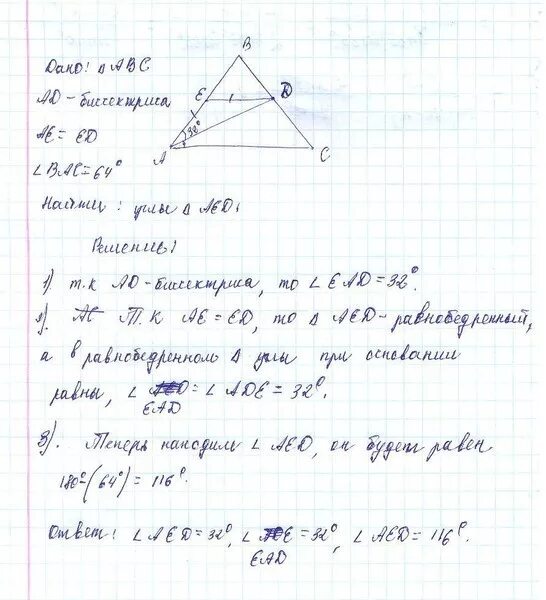 B
Дано: △ ABC
AD - биссектриса
E
D
AE = ED
38°
∠BAC = 64°
A
C
Найти: углы △ AED.
Решение:
1) т.к AD - биссектриса, то ∠EAD = 32°.
2) Т.К AE = ED, то △ AED - равнобедренный,
а в равнобедренном △ углы при основании
равны, ∠ EAD = ∠ ADE = 32°.
3). Теперь находим ∠ AED, он будет равен
180° - (64°) = 116°.
Ответ: ∠ AED = 32°, ∠ EAD = 32°, ∠ AED = 116°.